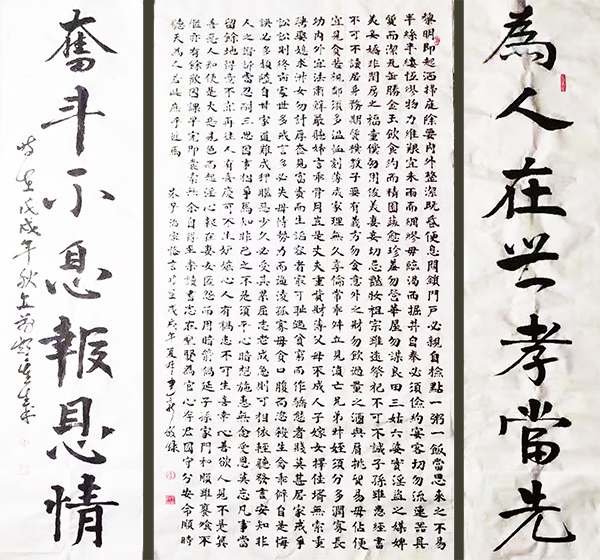 為人在世孝當先
黎明即起洒掃庭除要內外整潔既昏便息關鎖門戶必親自檢點一粥一飯當思來之不易
半絲半縷恆念物力維艱宜未雨而綢繆毋臨渴而掘井自奉必須儉約宴客切勿流連器具
質而潔瓦缶勝金玉飲食約而精園蔬愈珍羞勿營華屋勿謀良田三姑六婆實淫盜之媒婢
美妾嬌非閨房之福童僕勿用俊美妻妾切忌艷妝祖宗雖遠祭祀不可不誠子孫雖愚經書
不可不讀居身務期質樸教子要有義方勿貪意外之財勿飲過量之酒與肩挑貿易毋佔便
宜見貧苦親鄰須多溫恤刻薄成家理無久享倫常乖舛立見消亡兄弟叔姪須分多潤寡長
幼內外宜法肅辭嚴聽婦言乖骨肉豈是丈夫重貲財薄父母不成人子嫁女擇佳婿無索重
聘娶媳求淑女勿計厚奩見富貴而生諂容者最可恥遇貧窮而作驕態者賤莫甚居家戒爭
訟訟則終凶處世多戒言多必失毋恃勢力而逼凌孤寡毋貪口腹而恣殺生禽乖僻自是悔
誤必多頹隳自甘家道難成狎暱惡少久必受其累屈志老成急則可相依輕聽發言安知非
人之譖訴當忍耐三思因事相爭焉知非己之不是須平心暗想施惠無念受恩莫忘凡事當
留餘地得意不宜再往人有喜慶不可生妒嫉心人有禍患不可生喜幸心善欲人見不是真
善惡恐人知便是大惡見色而起淫心報在妻女匿怨而用暗箭禍延子孫家門和順雖饔飧不
繼亦有餘歡國課早完即囊橐無余自得至樂讀書志在聖賢為官心存君國守分安命順時
聽天為人若此庶乎近焉
朱子治家格言 戊戌年夏月 敬錄
奮斗不息報恩情
时在戊戌年秋